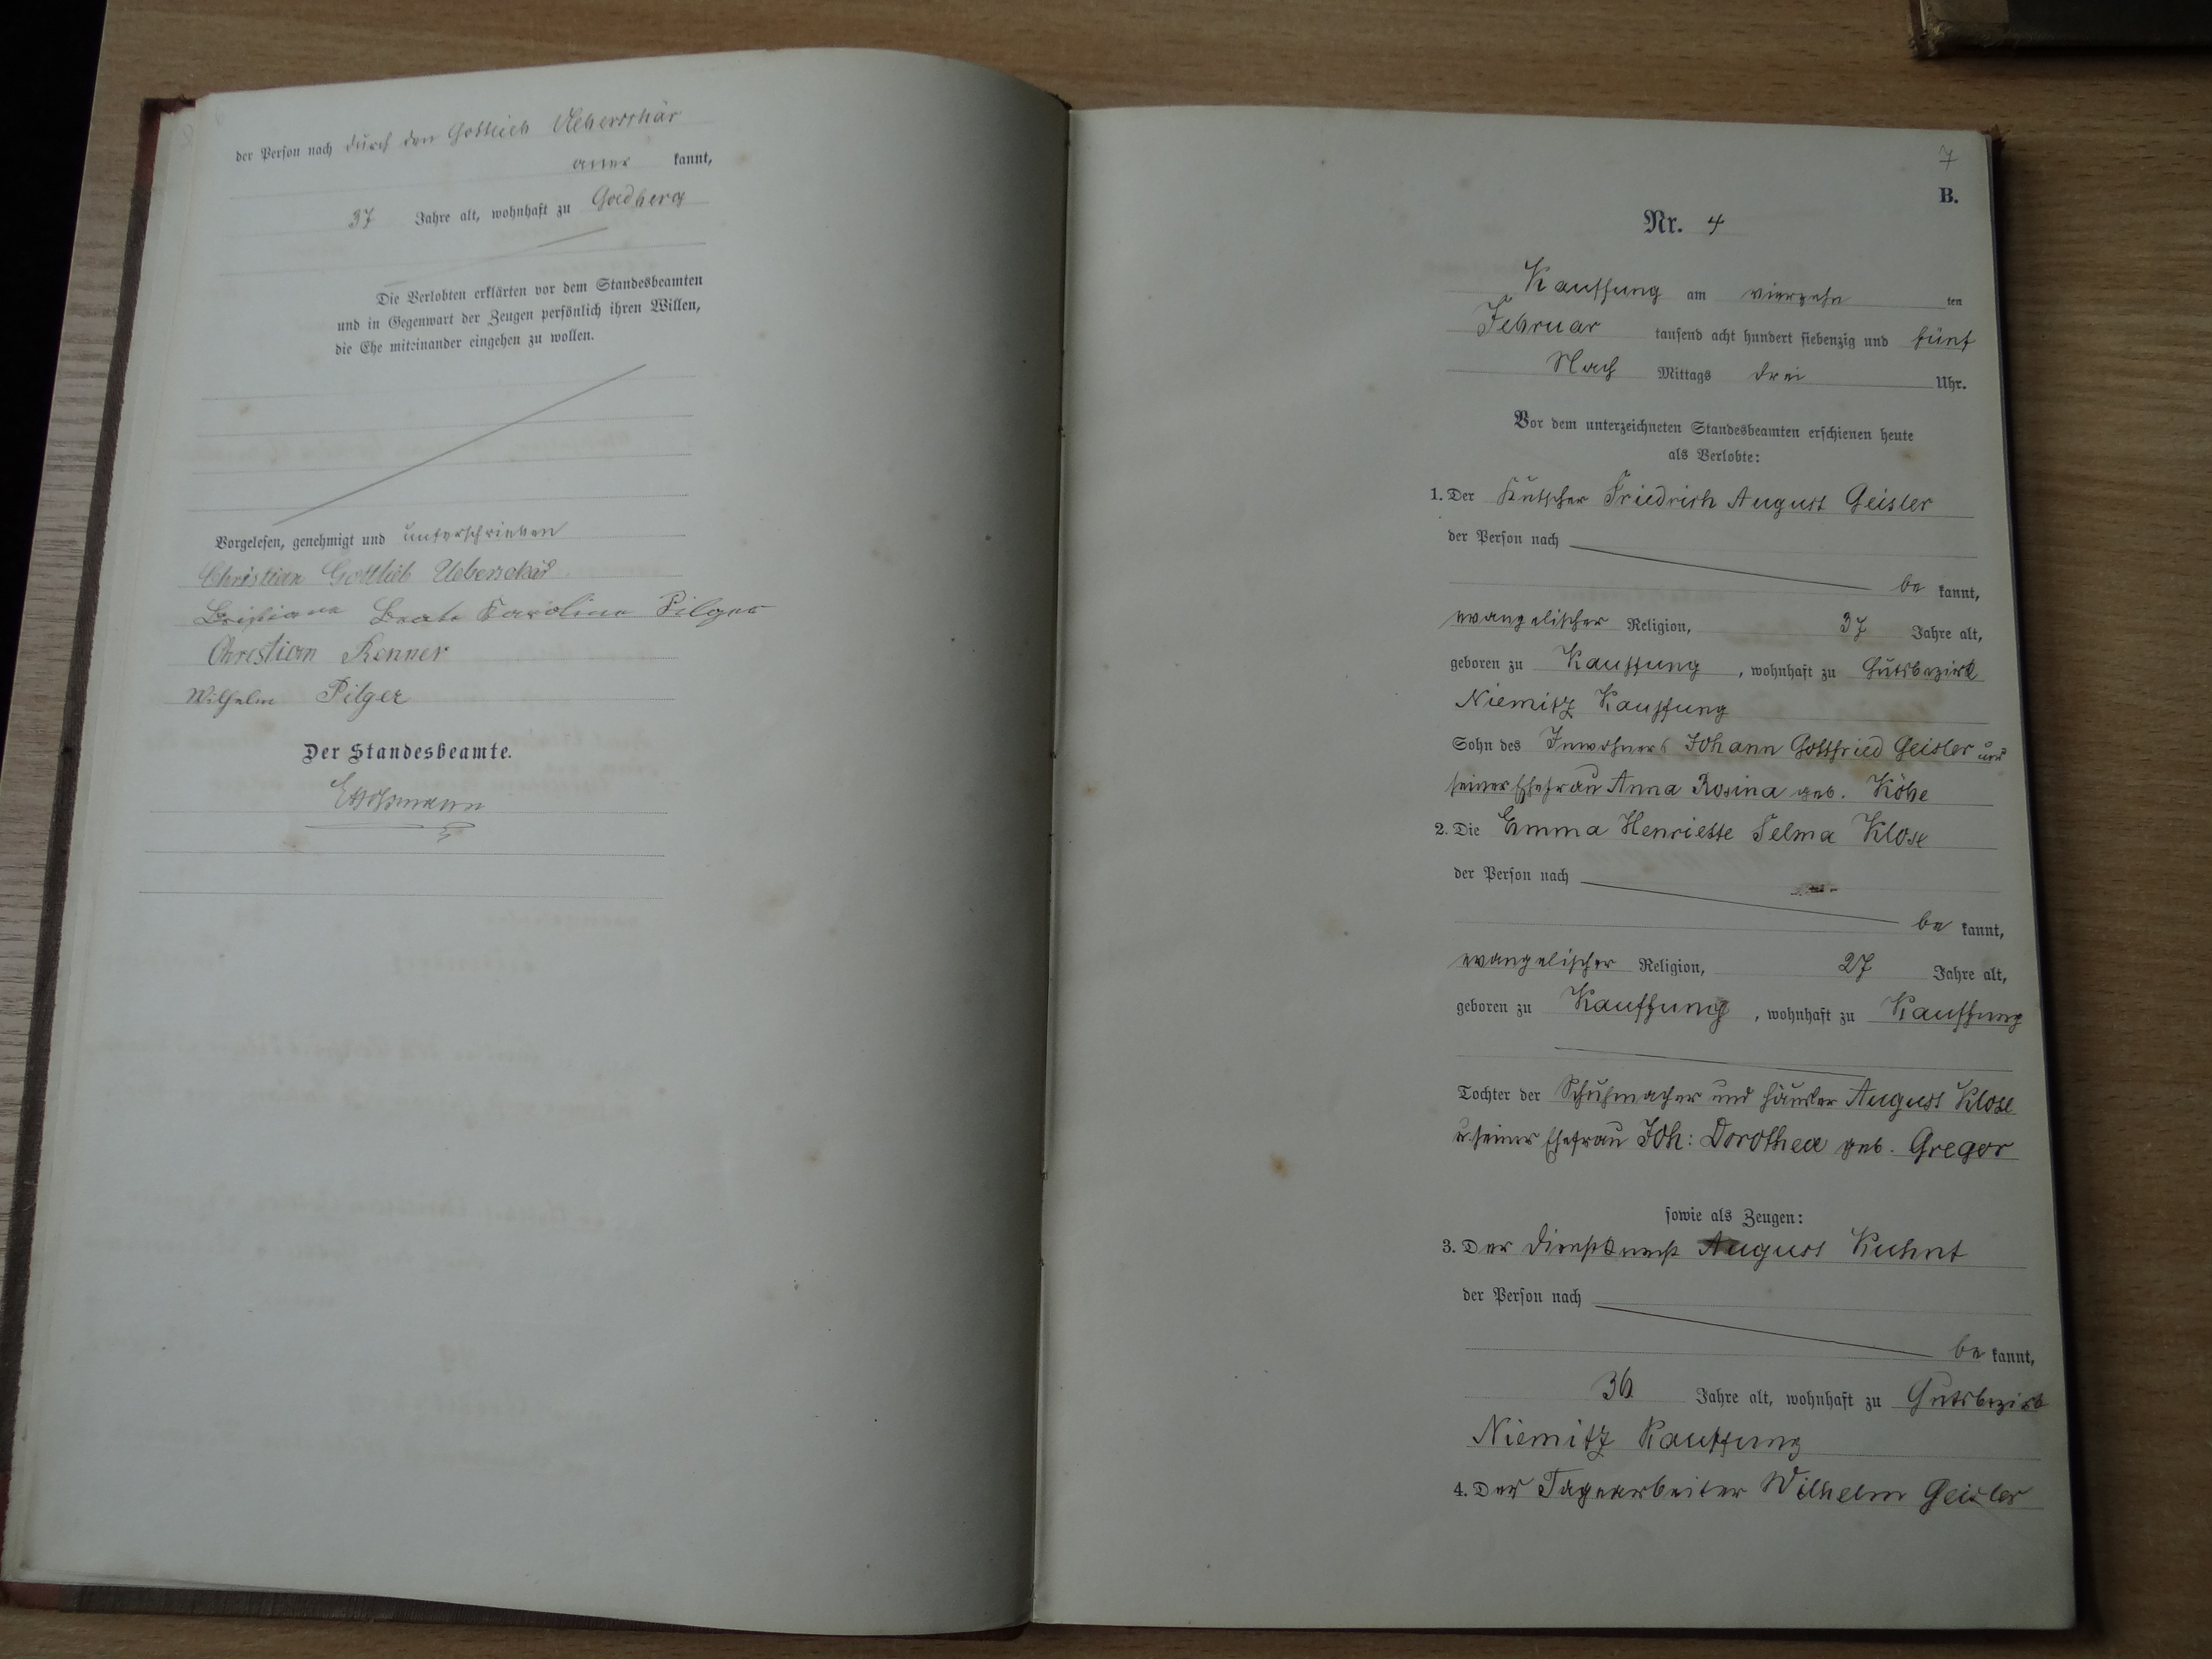 der Person nach durch den Gottlieb Ueberschär
aner kannt,
37 Jahre alt, wohnhaft zu Goldberg
Die Verlobten erklärten vor dem Standesbeamten
und in Gegenwart der Zeugen persönlich ihren Willen,
die Ehe miteinander eingehen zu wollen.
Vorgelesen, genehmigt und unterschrieben
Christian Gottlieb Ueberschär
Beate Karoline Pilger
Christian Renner
Wilhelm Pilger
Der Standesbeamte.
7
B.
Nr. 4
Kauffung am vierzehn ten
Februar tausend acht hundert siebenzig und fünf
Nach Mittags drei Uhr.
Vor dem unterzeichneten Standesbeamten erschienen heute
als Verlobte:
1. Der Kutscher Friedrich August Geisler
der Person nach
be kannt,
evangelischer Religion, 37 Jahre alt,
geboren zu Kauffung, wohnhaft zu Gutsbezirk
Niemitz Kauffung
Sohn des Inwohners Johann Gottfried Geisler und
seiner Ehefrau Anna Rosina geb. Köhe
2. Die Emma Henriette Selma Klose
der Person nach
be kannt,
evangelischer Religion, 27 Jahre alt,
geboren zu Kauffung, wohnhaft zu Kauffung
Tochter der Schuhmacher und Häusler August Klose
u seiner Ehefrau Joh: Dorothea geb. Gregor
sowie als Zeugen:
3. Der Dienstknecht August Kuhnt
der Person nach
be kannt,
36 Jahre alt, wohnhaft zu Gutsbezirk
Niemitz Kauffung
4. Der Tagearbeiter Wilhelm Geisler